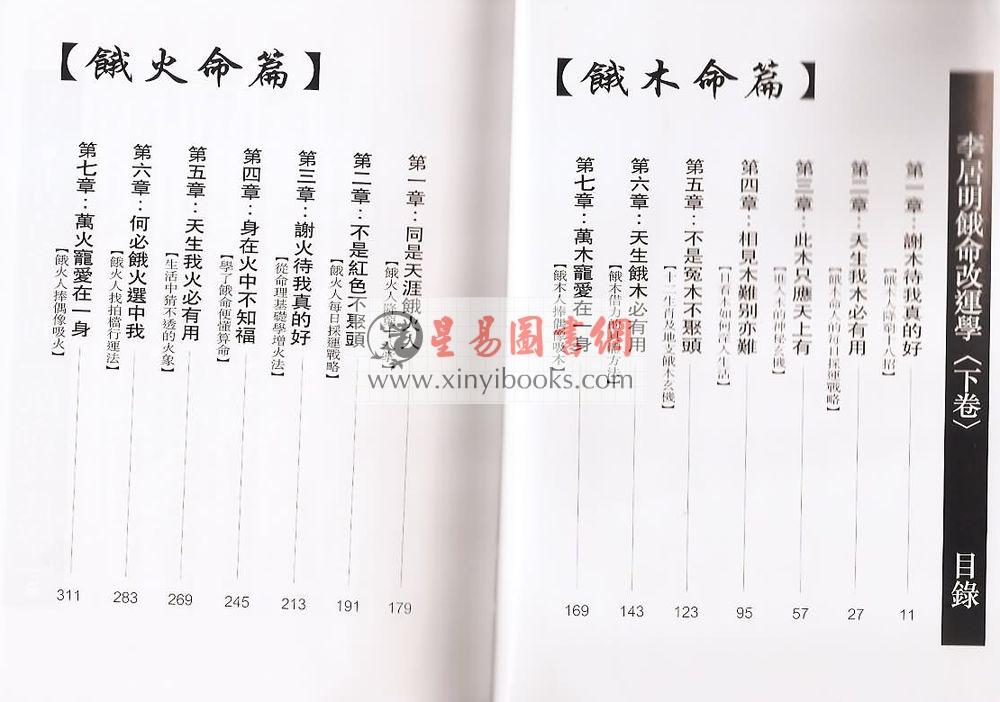 李居明餓命改運學〈下卷〉 目錄
【餓木命篇】
第一章：謝木待我真的好 11
【餓木人隆第十八招】
第二章：天生我木必有用 27
【餓木命人的每日採運戰略】
第三章：此木只應天上有 57
神秘玄機】
第四章：相見木難別亦難 95
如何 人生活】
第五章：不是冤木不聚頭 123
【十二生肖及地支餓木玄機】
第六章：天生餓木必有用 143
【餓木借力 方法】
第七章：萬木寵愛在一身 169
【餓木人捧偶像吸木】
【餓火命篇】
第一章：同是天涯餓火人 179
【餓火人
第二章：不是紅色不聚頭 191
【餓火人每日採運戰略】
第三章：謝火待我真的好 213
【從命理基礎學增火法】
第四章：身在火中不知福 245
【學了餓命便懂算命】
第五章：天生我火必有用 269
【生活中猜不透的火象】
第六章：何必餓火選中我 283
【餓火人找拍檔行運法】
第七章：萬火寵愛在一身 311
【餓火人捧偶像吸火】
星易圖書網
www.xinyibooks.com